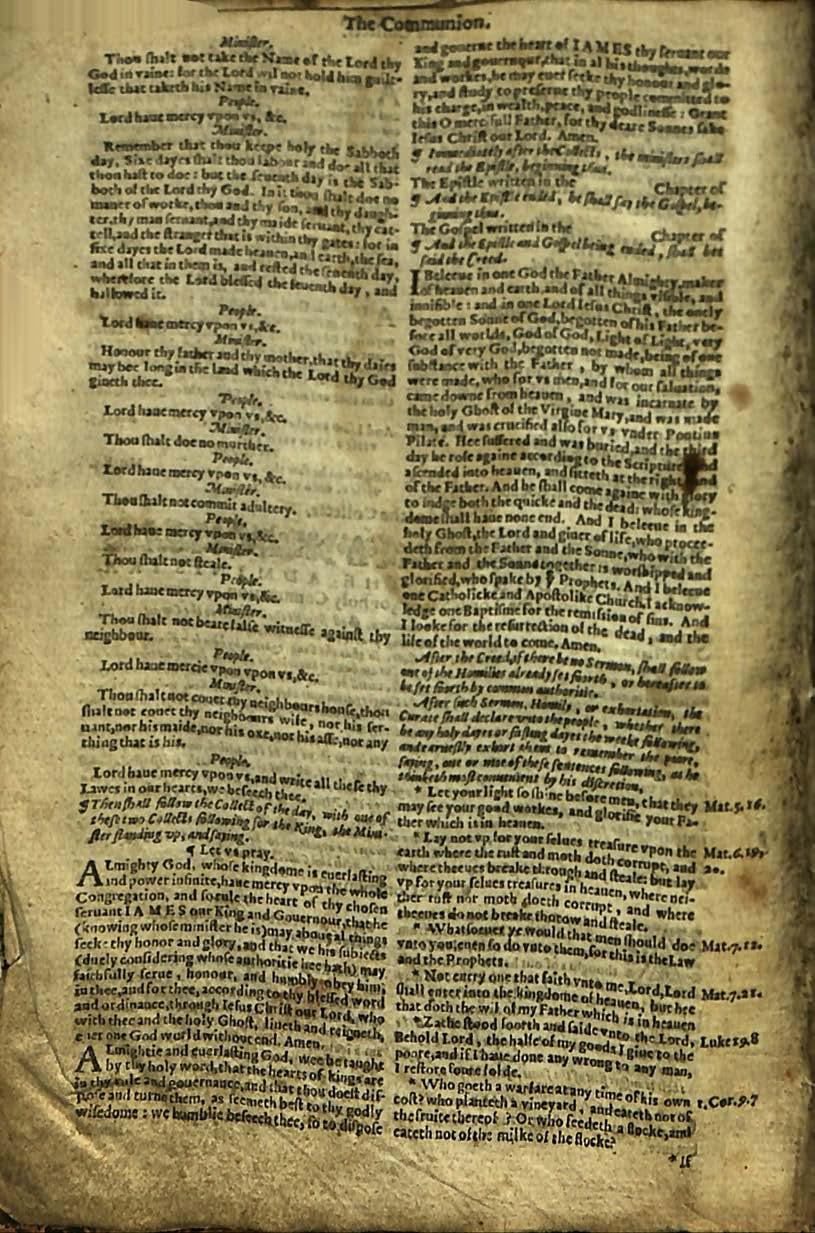 The Communion.
Minister.
Thou ſhalt not take the Name of the Lord thy
God in vaine: for the Lord wil not hold him guilt-
leſſe that taketh his Name in vaine.
People.
Lord haue mercy vpon vs, &c.
Minister.
Remember that thou keepe holy the Sabboth
day, Sixe dayes ſhalt thou labour and doe all that
thou haſt to doe: but the ſeuenth day is the Sab-
both of the Lord thy God. In it thou ſhalt doe no
maner of worke, thou and thy ſon, and thy daugh-
ter, thy man ſeruant, and thy maide ſeruant, thy cat-
tell, and the ſtranger that is within thy gates: for in
ſixe dayes the Lord made heauen, and earth, the ſea,
and all that in them is, and reſted the ſeuenth day,
wherefore the Lord bleſſed the ſeuenth day, and
hallowed it.
People.
Lord haue mercy vpon vs, &c.
Minister.
Honour thy father and thy mother, that thy daies
may bee long in the land which the Lord thy God
giueth thee.
People.
Lord haue mercy vpon vs, &c.
Minister.
Thou ſhalt doe no murther.
People.
Lord haue mercy vpon vs, &c.
Minister.
Thou ſhalt not commit adultery.
People.
Lord haue mercy vpon vs, &c.
Minister.
Thou ſhalt not ſteale.
People.
Lord haue mercy vpon vs, &c.
Minister.
Thou ſhalt not beare falſe witneſſe againſt thy
neighbour.
People.
Lord haue mercie vpon vpon vs, &c.
Minister.
Thou ſhalt not couet thy neighbours houſe, thou
ſhalt not couet thy neighbours wife, nor his ſer-
uant, nor his maide, nor his oxe, nor his aſſe, nor any
thing that is his.
People.
Lord haue mercy vpon vs, and write all theſe thy
Lawes in our hearts, we beſeech thee.
¶ Then ſhall follow the Collect of the day, with one of
theſe two Collects following for the King, the Mini-
ſter ſtanding vp, and ſaying.
¶ Let vs pray.
ALmighty God, whoſe kingdome is euerlaſting
and power infinite, haue mercy vpon the whole
Congregation, and ſo rule the heart of thy choſen
ſeruant IAMES our King and Gouernour, that he
(knowing whoſe miniſter he is) may aboue al things
ſeeke thy honor and glory, and that we his ſubiects
(duely conſidering whoſe authoritie hee hath) may
faithfully ſerue, honour, and humbly obey him,
in thee, and for thee, according to thy bleſſed word
and ordinance, through Ieſus Chriſt our Lord, who
with thee and the holy Ghoſt, liueth and reigneth,
euer one God world without end. Amen.
ALmightie and euerlaſting God, wee be taught
by thy holy word, that the hearts of kings are
in thy rule and gouernance, and that thou doeſt diſ-
poſe and turne them, as ſeemeth beſt to thy godly
wiſedome: we humblie beſeech thee, ſo to diſpoſe
and gouerne the heart of IAMES thy ſeruant our
King and gouernour, that in al his thoughts, words
and workes, he may euer ſeeke thy honour and glo-
ry, and ſtudy to preſerue thy people committed to
his charge, in wealth, peace, and godlineſſe: Grant
this O mercifull Father, for thy deare Sonnes ſake
Ieſus Chriſt our Lord. Amen.
¶ Immediatly after the Collects, the miniſters ſhall
read the Epiſtle, beginning thus.
The Epiſtle written in the Chapter of
¶ And the Epiſtle ended, he ſhall ſay the Goſpel, be-
ginning thus.
The Goſpel written in the Chapter of
¶ And the Epiſtle and Goſpel being ended, ſhall bee
ſaid the Creed.
I Beleeue in one God the Father Almighty, maker
of heauen and earth, and of all things viſible, and
inuiſible: and in one Lord Ieſus Chriſt, the onely
begotten Sonne of God, begotten of his Father be-
fore all worlds, God of God, Light of Light, very
God of very God, begotten not made, being of one
ſubſtance with the Father, by whom all things
were made, who for vs men, and for our ſaluation,
came downe from heauen, and was incarnate by
the holy Ghoſt of the Virgine Mary, and was made
man, and was crucified alſo for vs vnder Pontius
Pilate. Hee ſuffered and was buried, and the third
day he roſe againe according to the Scripture and
aſcended into heauen, and ſitteth at the right hand
of the Father. And he ſhall come againe with glory
to iudge both the quicke and the dead: whoſe king-
dome ſhall haue none end. And I beleeue in the
holy Ghoſt, the Lord and giuer of life, who procee-
deth from the Father and the Sonne, who with the
Father and the Sonne together is worſhipped and
glorified, who ſpake by yͤ Prophets. And I beleeue
one Catholicke and Apoſtolike Church, I acknow-
ledge one Baptiſme for the remiſſion of ſins. And
I looke for the reſurrection of the dead, and the
life of the world to come. Amen.
After the Creed, if there be no Sermon, ſhall follow
one of the Homilies already ſet foorth, or hereafter to
be ſet foorth by common authoritie.
After ſuch Sermon, Homily, or exhortation, the
Curate ſhall declare vnto the people, whether there
be any holy dayes or faſting dayes the weeke following,
and earneſtly exhort them to remember the poore,
ſaying, one or moe of theſe ſentences following, as he
thinketh moſt conuenient by his diſcretion.
* Let your light ſo ſhine before men, that they Mat. 5. 16.
may ſee your good workes, and glorifie your Fa-
ther which is in heauen.
* Lay not vp for your ſelues treaſure vpon the Mat. 6. 19,
earth where the ruſt and moth doth corrupt, and 20.
where theeues breake through and ſteale: but lay
vp for your ſelues treaſures in heauen, where nei-
ther ruſt nor moth doeth corrupt, and where
theeues do not breake thorow and ſteale.
* Whatſoeuer ye would that men ſhould doe Mat. 7. 12.
vnto you, euen ſo do vnto them, for this is the Law
and the Prophets.
* Not euery one that ſaith vnto me, Lord, Lord Mat. 7. 21.
ſhall enter into the kingdome of heauen, but hee
that doth the wil of my Father which is in heauen
* Zache ſtood foorth and ſaide vnto the Lord, Luke 19. 8
Behold Lord, the halfe of my goods I giue to the
poore, and if I haue done any wrong to any man,
I reſtore foure folde.
* Who goeth a warfare at any time of his own 1. Cor. 9. 7
coſt? who planteth a vineyard, and eateth not of
the fruite thereof? Or who feedeth a flocke, and
eateth not of the milke of the flocke?
* If